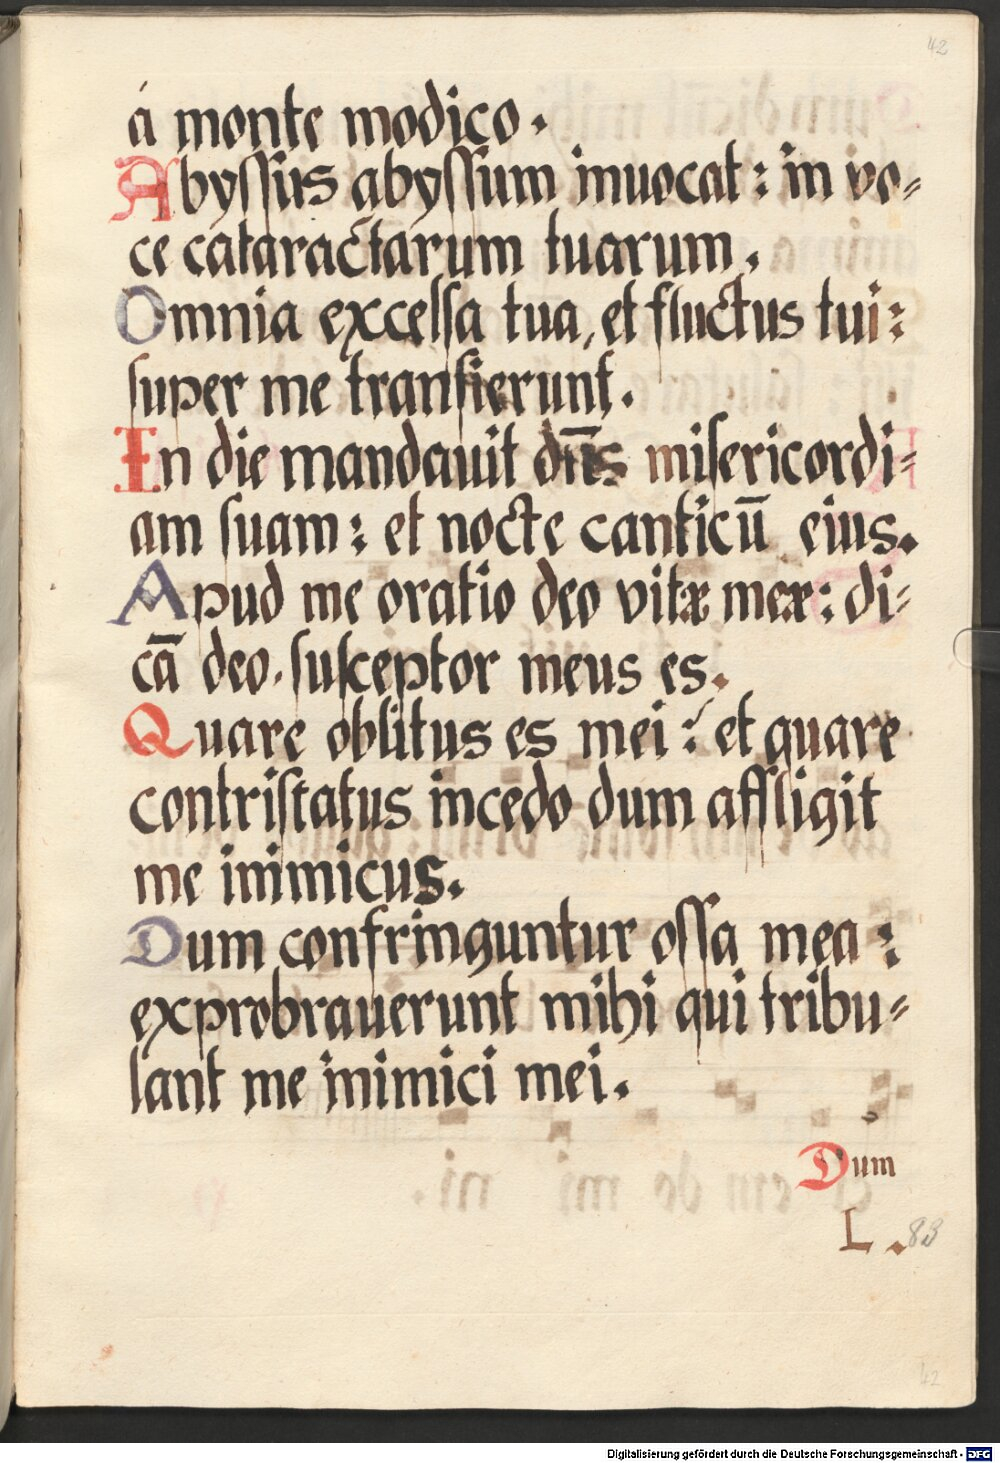 42
á monte modico.
Abyssus abyssum inuocat: in vo=
ce cataractarum tuarum.
Omnia excelsa tua, et fluctus tui:
super me transierunt.
In die mandauit dn̄s misericordi=
am suam: et nocte canticū eius.
Apud me oratio deo vitæ meæ: di=
cā deo. susceptor meus es.
Quare oblitus es mei? et quare
contristatus incedo dum affligit
me inimicus.
Dum confringuntur ossa mea:
exprobrauerunt mihi qui tribu=
lant me inimici mei.
Dum
L. 83
42
Digitalisierung gefördert durch die Deutsche Forschungsgemeinschaft - DFG